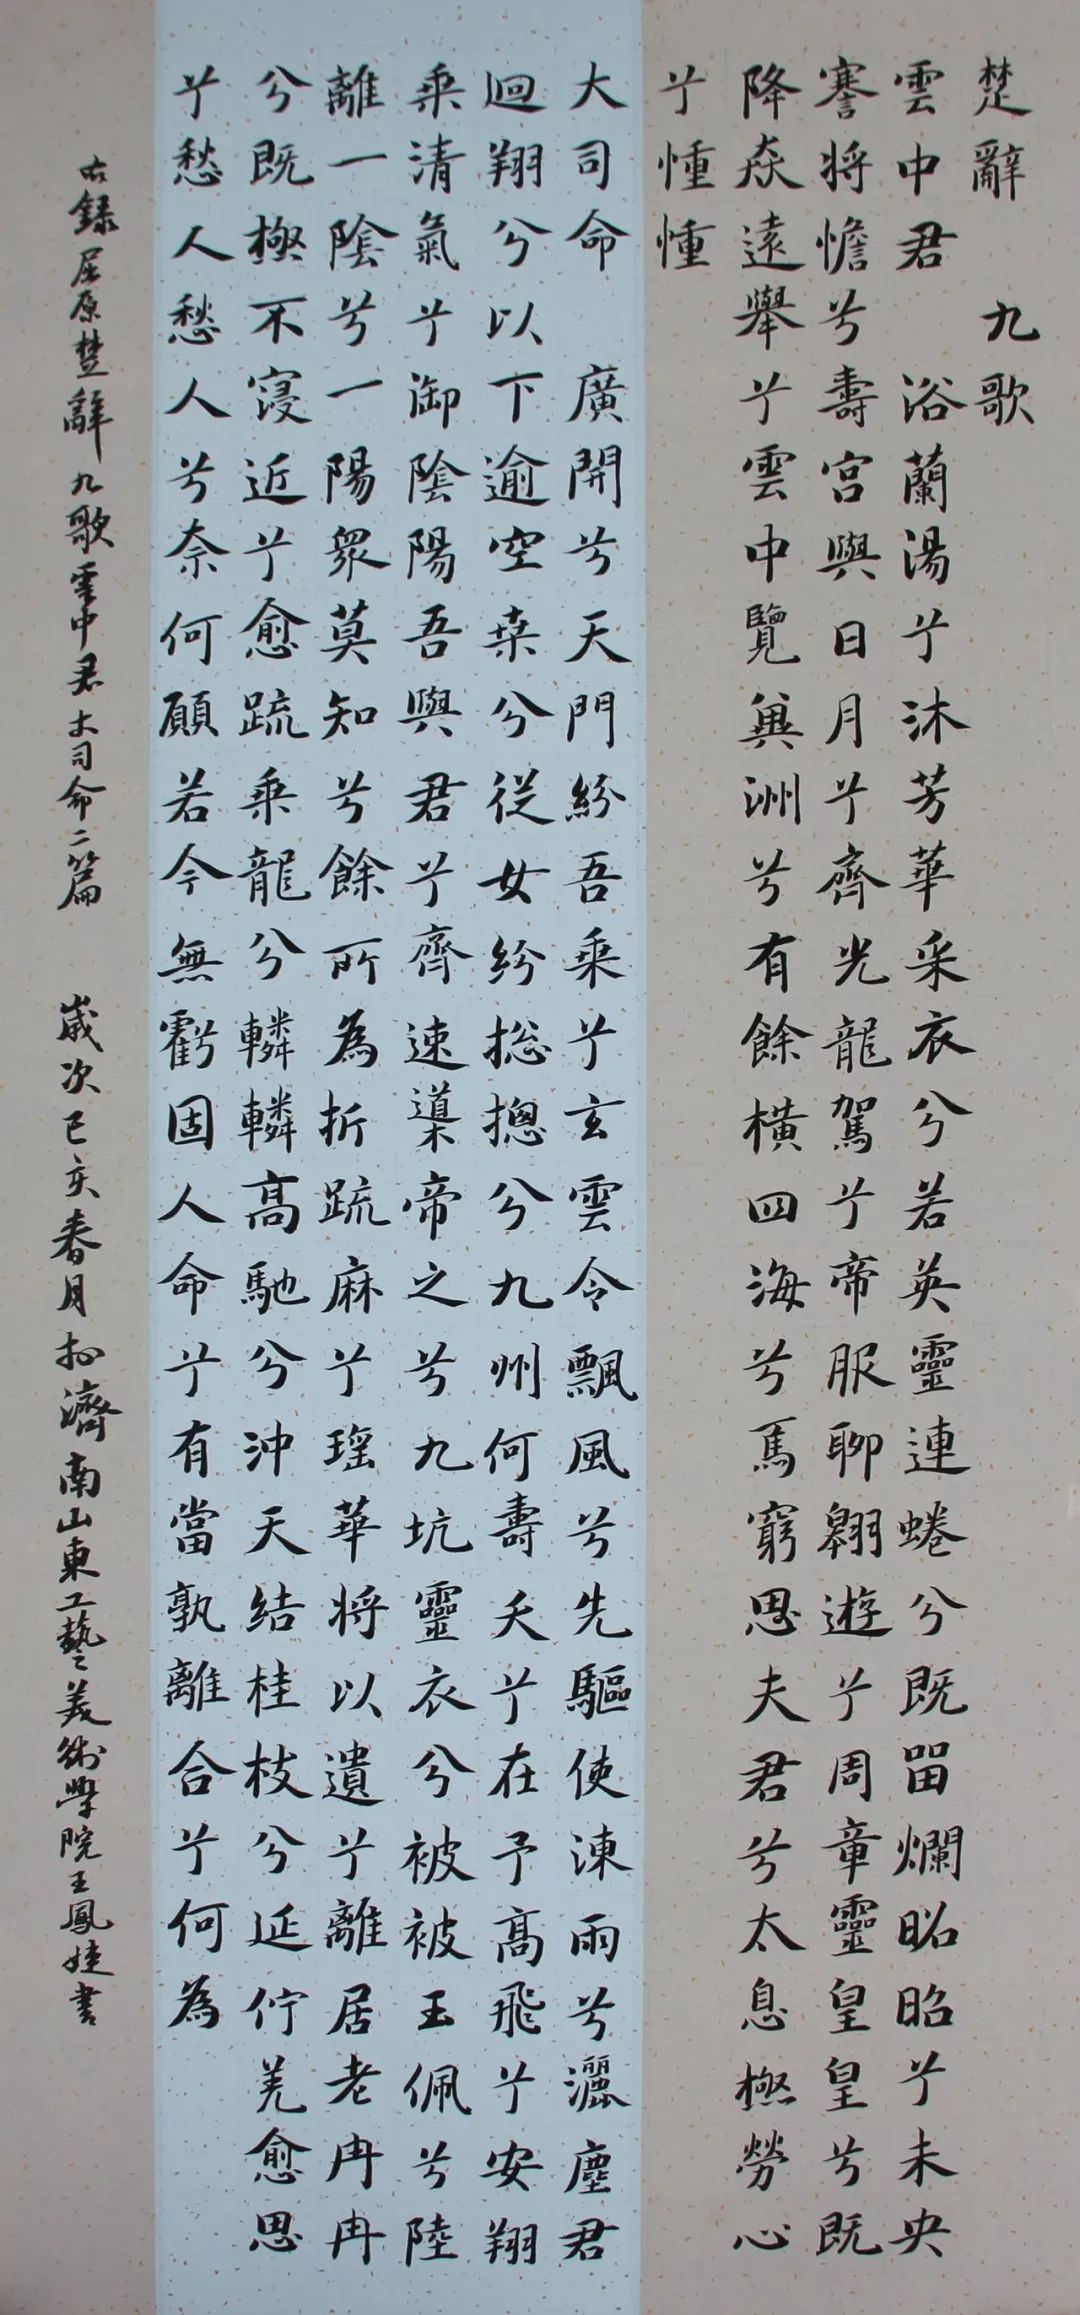 楚辭 九歌
雲中君 浴蘭湯兮沐芳華采衣兮若英靈連蜷兮既留爛昭昭兮未央
謇將憺兮壽宮與日月兮齊光龍駕兮帝服聊翱遊兮周章靈皇皇兮既
降猋遠舉兮雲中覽冀洲兮有餘橫四海兮焉窮思夫君兮太息極勞心
兮㥉㥉
大司命 廣開兮天門紛吾乘兮玄雲令飄風兮先驅使涷雨兮灑塵君
迴翔兮以下逾空桒兮從女紛總摠兮九州何壽夭兮在予高飛兮安翔
乘清氣兮御陰陽吾與君兮齊速導帝之兮九坑靈衣兮被被玉佩兮陸
離一陰兮一陽眾莫知兮餘所為折疏麻兮瑶華將以遺兮離居老冉冉
兮既極不寖近兮愈疏乘龍兮轔轔高馳兮沖天結桂枝兮延佇羌愈思
兮愁人愁人兮奈何願若今無虧固人命兮有當孰離合兮何為
右録屈原楚辭九歌雲中君大司命二篇 歲次己亥春月於濟南山東工藝美術學院王鳳娃書